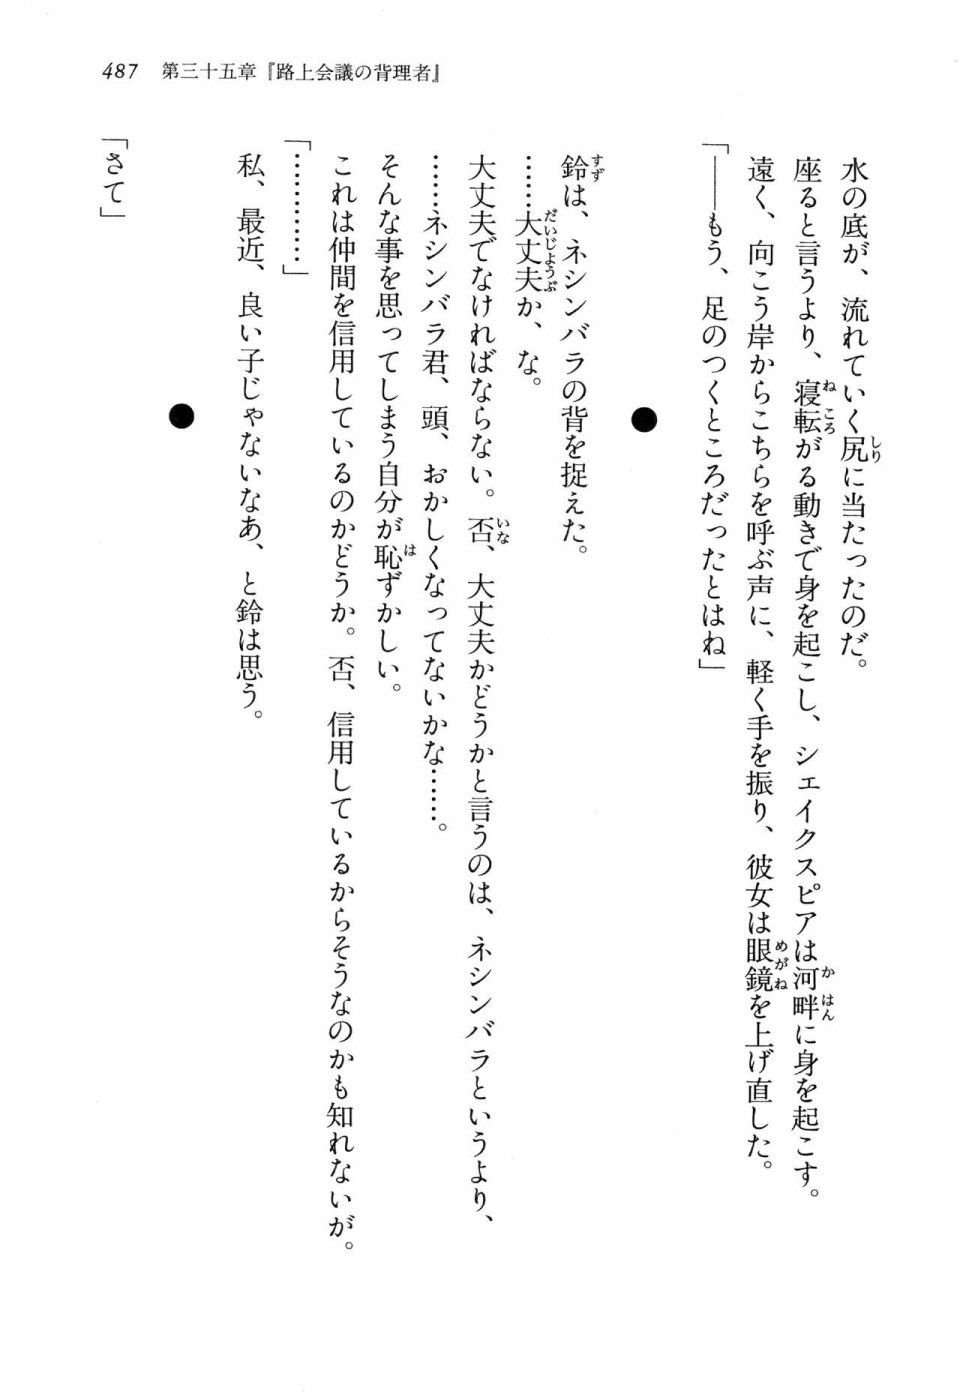 487 第三十五章『路上会議の背理者』
水の底が、流れていく尻に当たったのだ。
座ると言うより、寝転がる動きで身を起こし、シェイクスピアは河畔に身を起こす。
遠く、向こう岸からこちらを呼ぶ声に、軽く手を振り、彼女は眼鏡を上げ直した。
「――もう、足のつくところだったとはね」
●
鈴は、ネシンバラの背を捉えた。
……大丈夫か、な。
大丈夫でなければならない。否、大丈夫かどうかと言うのは、ネシンバラというより、
……ネシンバラ君、頭、おかしくなってないかな……。
そんな事を思ってしまう自分が恥ずかしい。
これは仲間を信用しているのかどうか。否、信用しているからそうなのかも知れないが。
「…………」
私、最近、良い子じゃないなあ、と鈴は思う。
●
「さて」